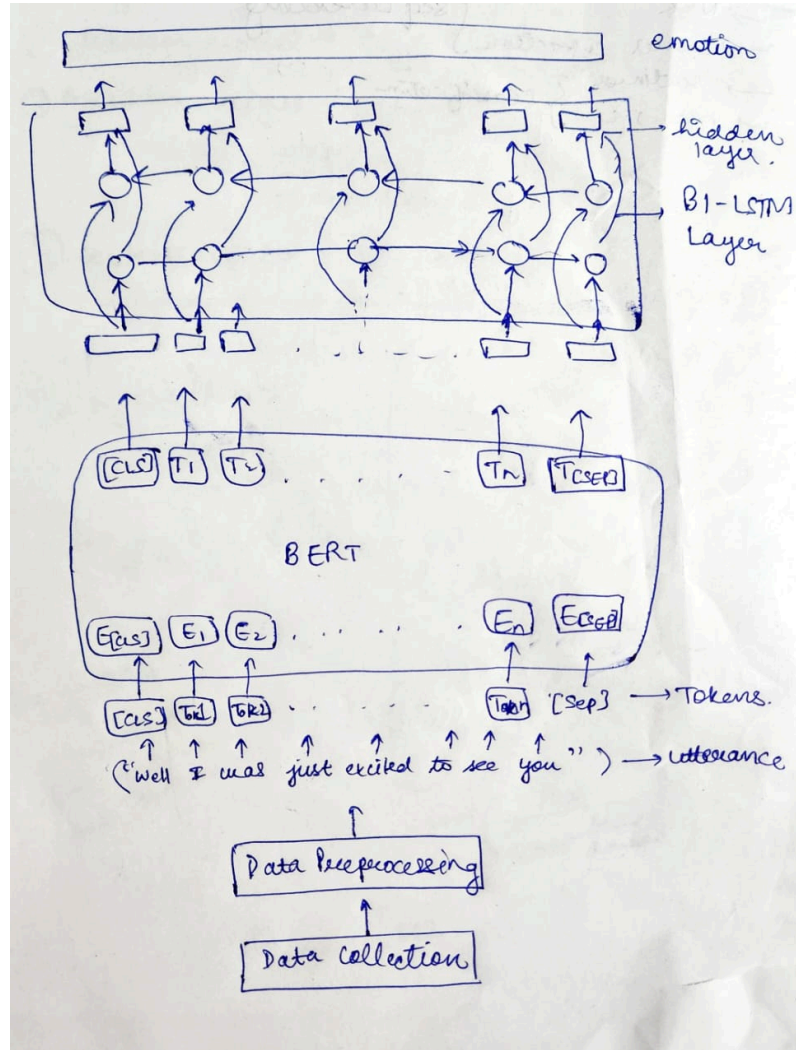 emotion
hidden
layer.
BI-LSTM
Layer
[CLS] T1 T2 . . . . . Tn T[SEP]
BERT
E[CLS] E1 E2 . . . . . En E[SEP]
[CLS] Tok1 TOK2 . . . . . [Sep] → Tokens.
("Well I was just excited to see you") → utterance
Data Preprocessing
Data Collection